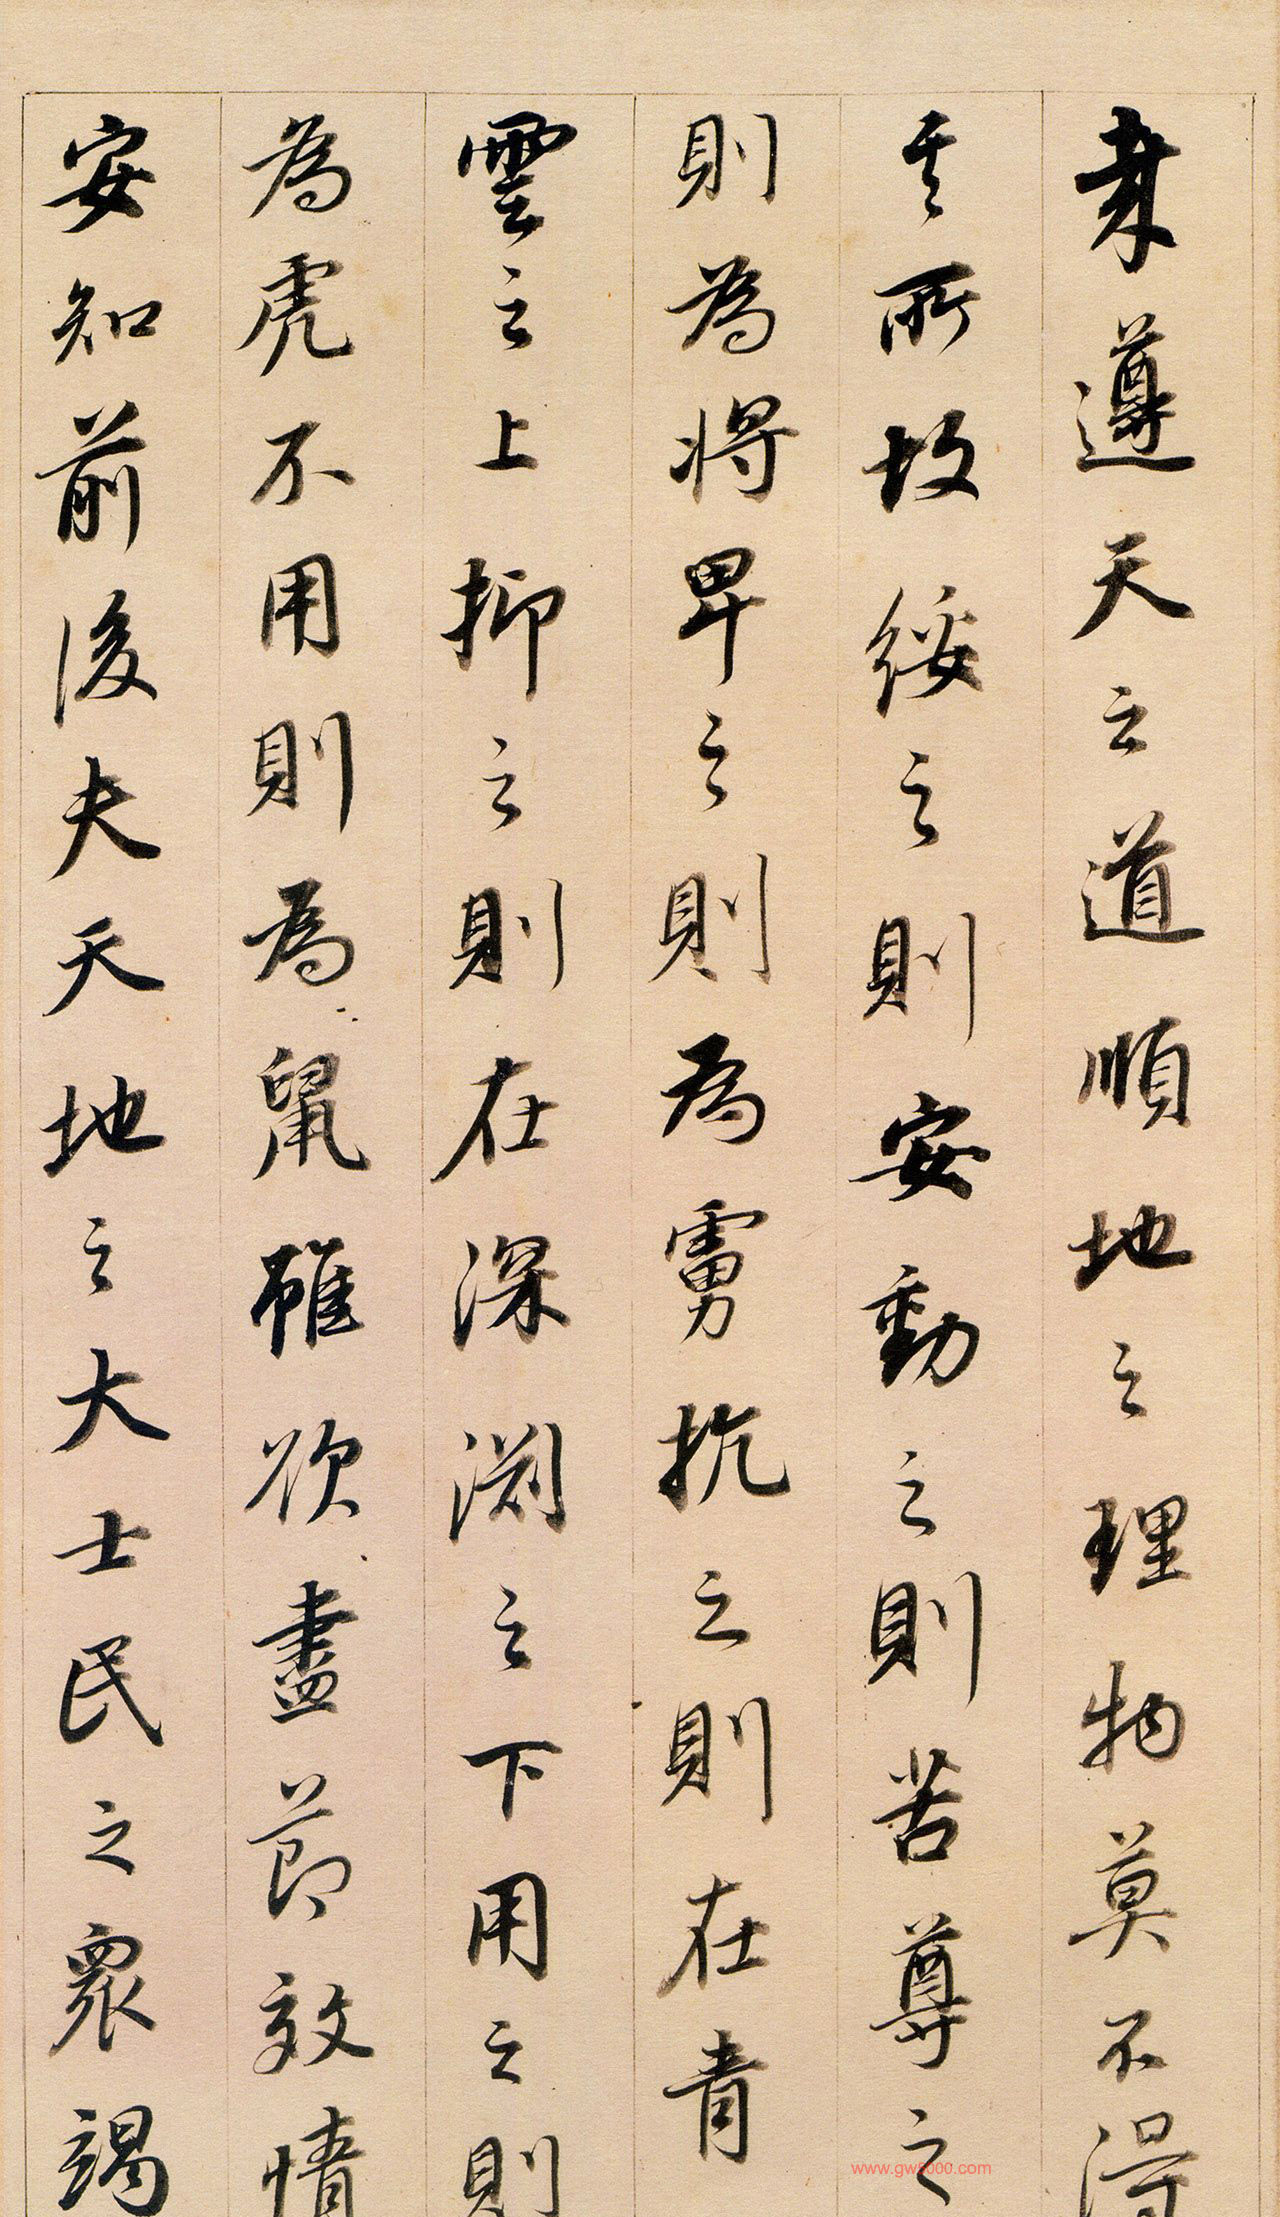 遵天之道順地之理物莫不得
其所故綏之則安動之則苦尊之
則為將卑之則為虜抗之則在青
雲之上抑之則在深淵之下用之則
為虎不用則為鼠雖欲盡節效情
安知前後夫天地之大士民之衆竭